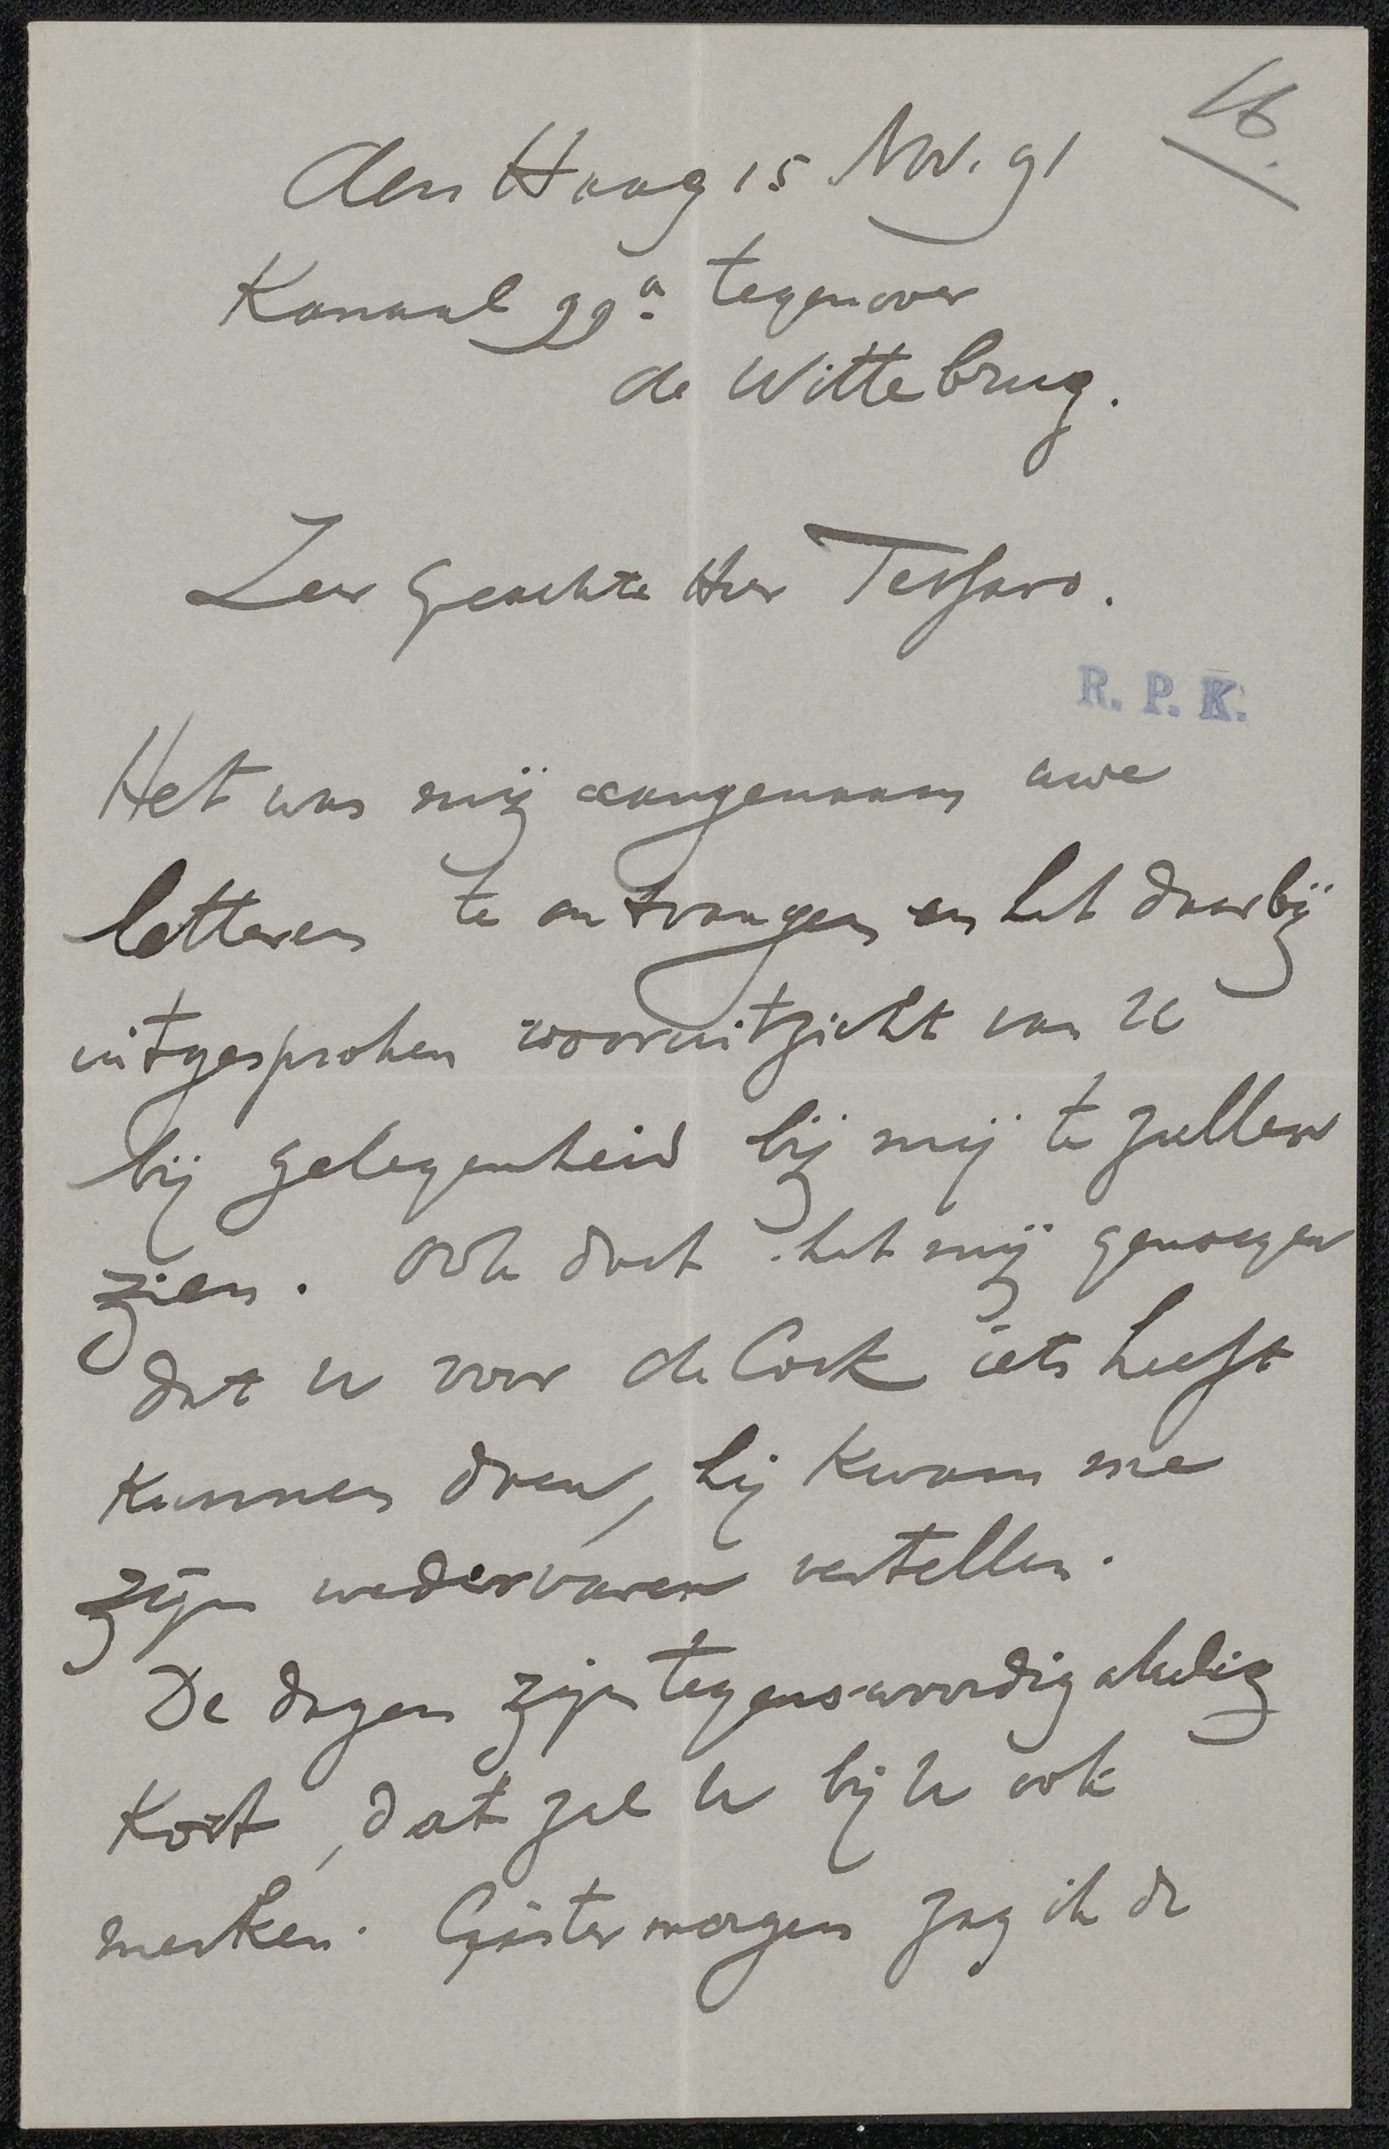 16.
den Haag 15 Nov. 91
Kanaal 99a tegenover
de Wittebrug.
Zeer Geachte Heer Tessaro.
R. P. K.
Het was mij aangenaam uwe
letteren te ontvangen en het daarbij
uitgesproken vooruitzicht van U
bij gelegenheid bij mij te zullen
zien. Ook doet het mij genoegen
dat U voor de Cock iets heeft
kunnen doen, hij kwam me
zijn wedervaren vertellen.
De dagen zijn tegenswoordig akelig
kort, dat zal U bij U ook
merken. Gister morgen zag ik de